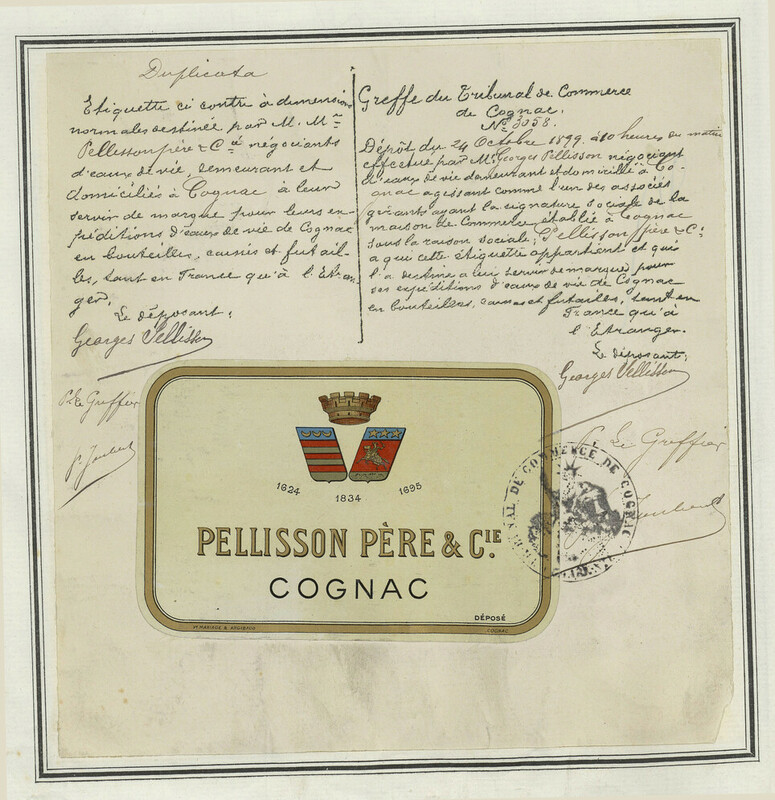 Duplicata
Etiquette ci contre à dimensions
normales destinée par M. Mrs
Pellisson père & Cie négociants
d'eaux de vie, demeurant et
domiciliés à Cognac à leur
servir de marque pour leurs ex-
péditions d'eaux de vie de Cognac
en bouteilles, caisses et futail-
les, tant en France qu'à l'Etran-
ger.
Le déposant:
Georges Pellisson
P. Le Greffier
P. Joubert
Greffe du Tribunal de Commerce
de Cognac.
No 3058.
Dépôt du 24 Octobre 1899 à 10 heures du matin
effectué par Mr Georges Pellisson négociant
d'eaux de vie demeurant et domicilié à Co-
gnac agissant comme l'un des associés
gérants ayant la signature sociale de la
maison de Commerce établie à Cognac
sous la raison sociale: Pellisson père & Cie
à qui cette étiquette appartient et qui
l'a destinée à lui servir de marque pour
ses expéditions d'eaux de vie de Cognac
en bouteilles, caisses et futailles, tant en
France qu'à
l'Etranger.
Le déposant:
Georges Pellisson
P. Le Greffier
Joubert
TRIBUNAL DE COMMERCE DE COGNAC
1624 1834 1695
PELLISSON PÈRE & CIE
COGNAC
DÉPOSÉ
COGNAC